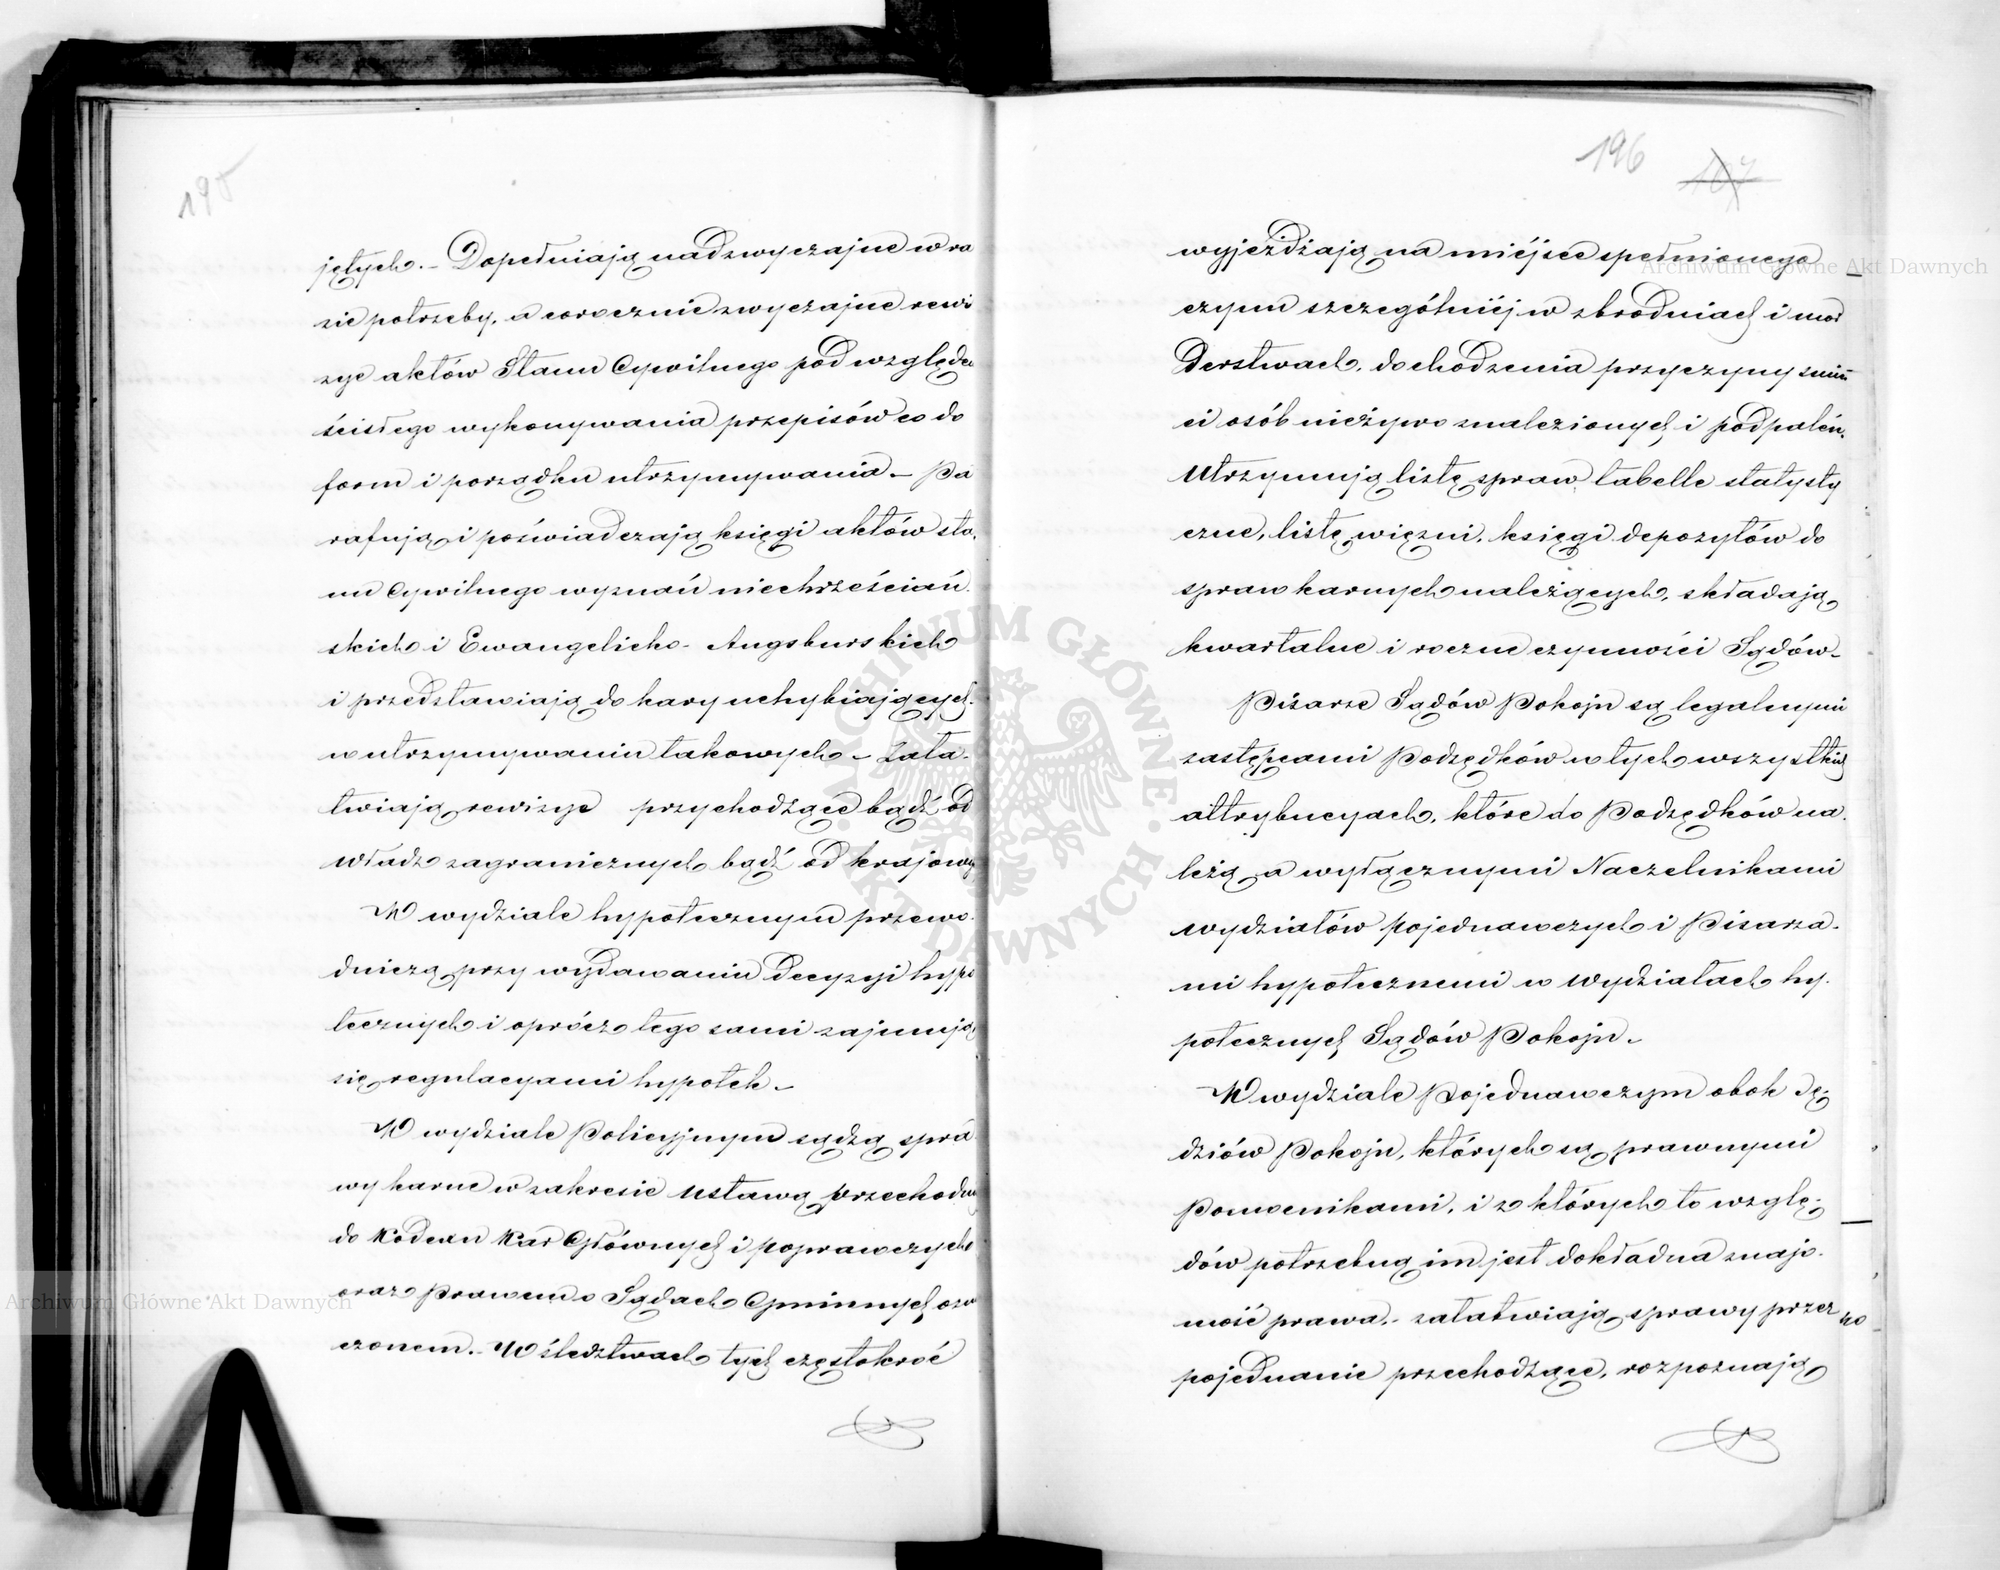 195
jętych. – Dopełniają nadzwyczajne w ra
zie potrzeby, a corocznie zwyczajne rewi
zye aktów Stanu Cywilnego pod względem
ścisłego wykonywania przepisów co do
form i porządku utrzymywania – Pa
rafują i poświadczają księgi aktów sta,
nu Cywilnego wyznań niechrześciań.
skich i Ewangelicko-Augsburskich
i przedstawiają do kary uchybiających
w utrzymywaniu takowych – Zała-
twiają rewizye przychodzące bądź od
władz zagranicznych bądź od krajowych
W wydziale hypotecznym przewo-
dniczą przy wydawaniu Decyzyi hypo
tecznych i oprócz tego sami zajmują
się regulacyami hypotek –
W wydziale Policyjnym sądzą spra
wy karne w zakresie ustawą przechodnią
do Kodexu Kar Głównych i poprawczych
oraz Prawem o Sądach Gminnych ozna
czonem. – W śledztwach tych częstokroć
196
107
wyjeżdżają na miéjsce spełnionego
czynu szczególniéj w zbrodniach i mor
derstwach, dochodzenia przyczyny śmier
ci osób nieżywo znalezionych i podpaleń.
Utrzymują listę spraw, tabelle statysty
czne, listę więzni, księgi depozytów do
spraw karnych należących, składają
kwartalne i roczne czynności Sądów –
Pisarze Sądów Pokoju są legalnymi
zastępcami Podsędków w tych wszystkich
attrybucyach, które do Podsędków na-
leżą, a wyłącznymi Naczelnikami
wydziałów pojednawczych i Pisarza-
mi hypotecznemi w wydziałach hy-
potecznych Sądów Pokoju –
W wydziale Pojednawczym obok Sę-
dziów Pokoju, których są prawnymi
Pomocnikami, i z których to wzglę-
dów potrzebną im jest dokładna znajo-
mość prawa, – załatwiają sprawy przez
pojednanie przechodzące, rozpoznają
Archiwum Główne Akt Dawnych
Archiwum Główne Akt Dawnych
ARCHIWUM GŁÓWNE AKT DAWNYCH